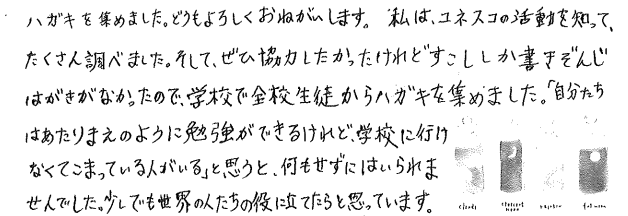 ハガキを集めました。どうもよろしくおねがいします。私は、ユネスコの活動を知って、
たくさん調べました。そして、ぜひ協力したかったけれどすこししか書きぞんじ
はがきがなかったので、学校で全校生徒からハガキを集めました。「自分たち
はあたりまえのように勉強ができるけれど、学校に行け
なくてこまっている人がいる」と思うと、何もせずにはいられま
せんでした。少しでも世界の人たちの役に立てたらと思っています。